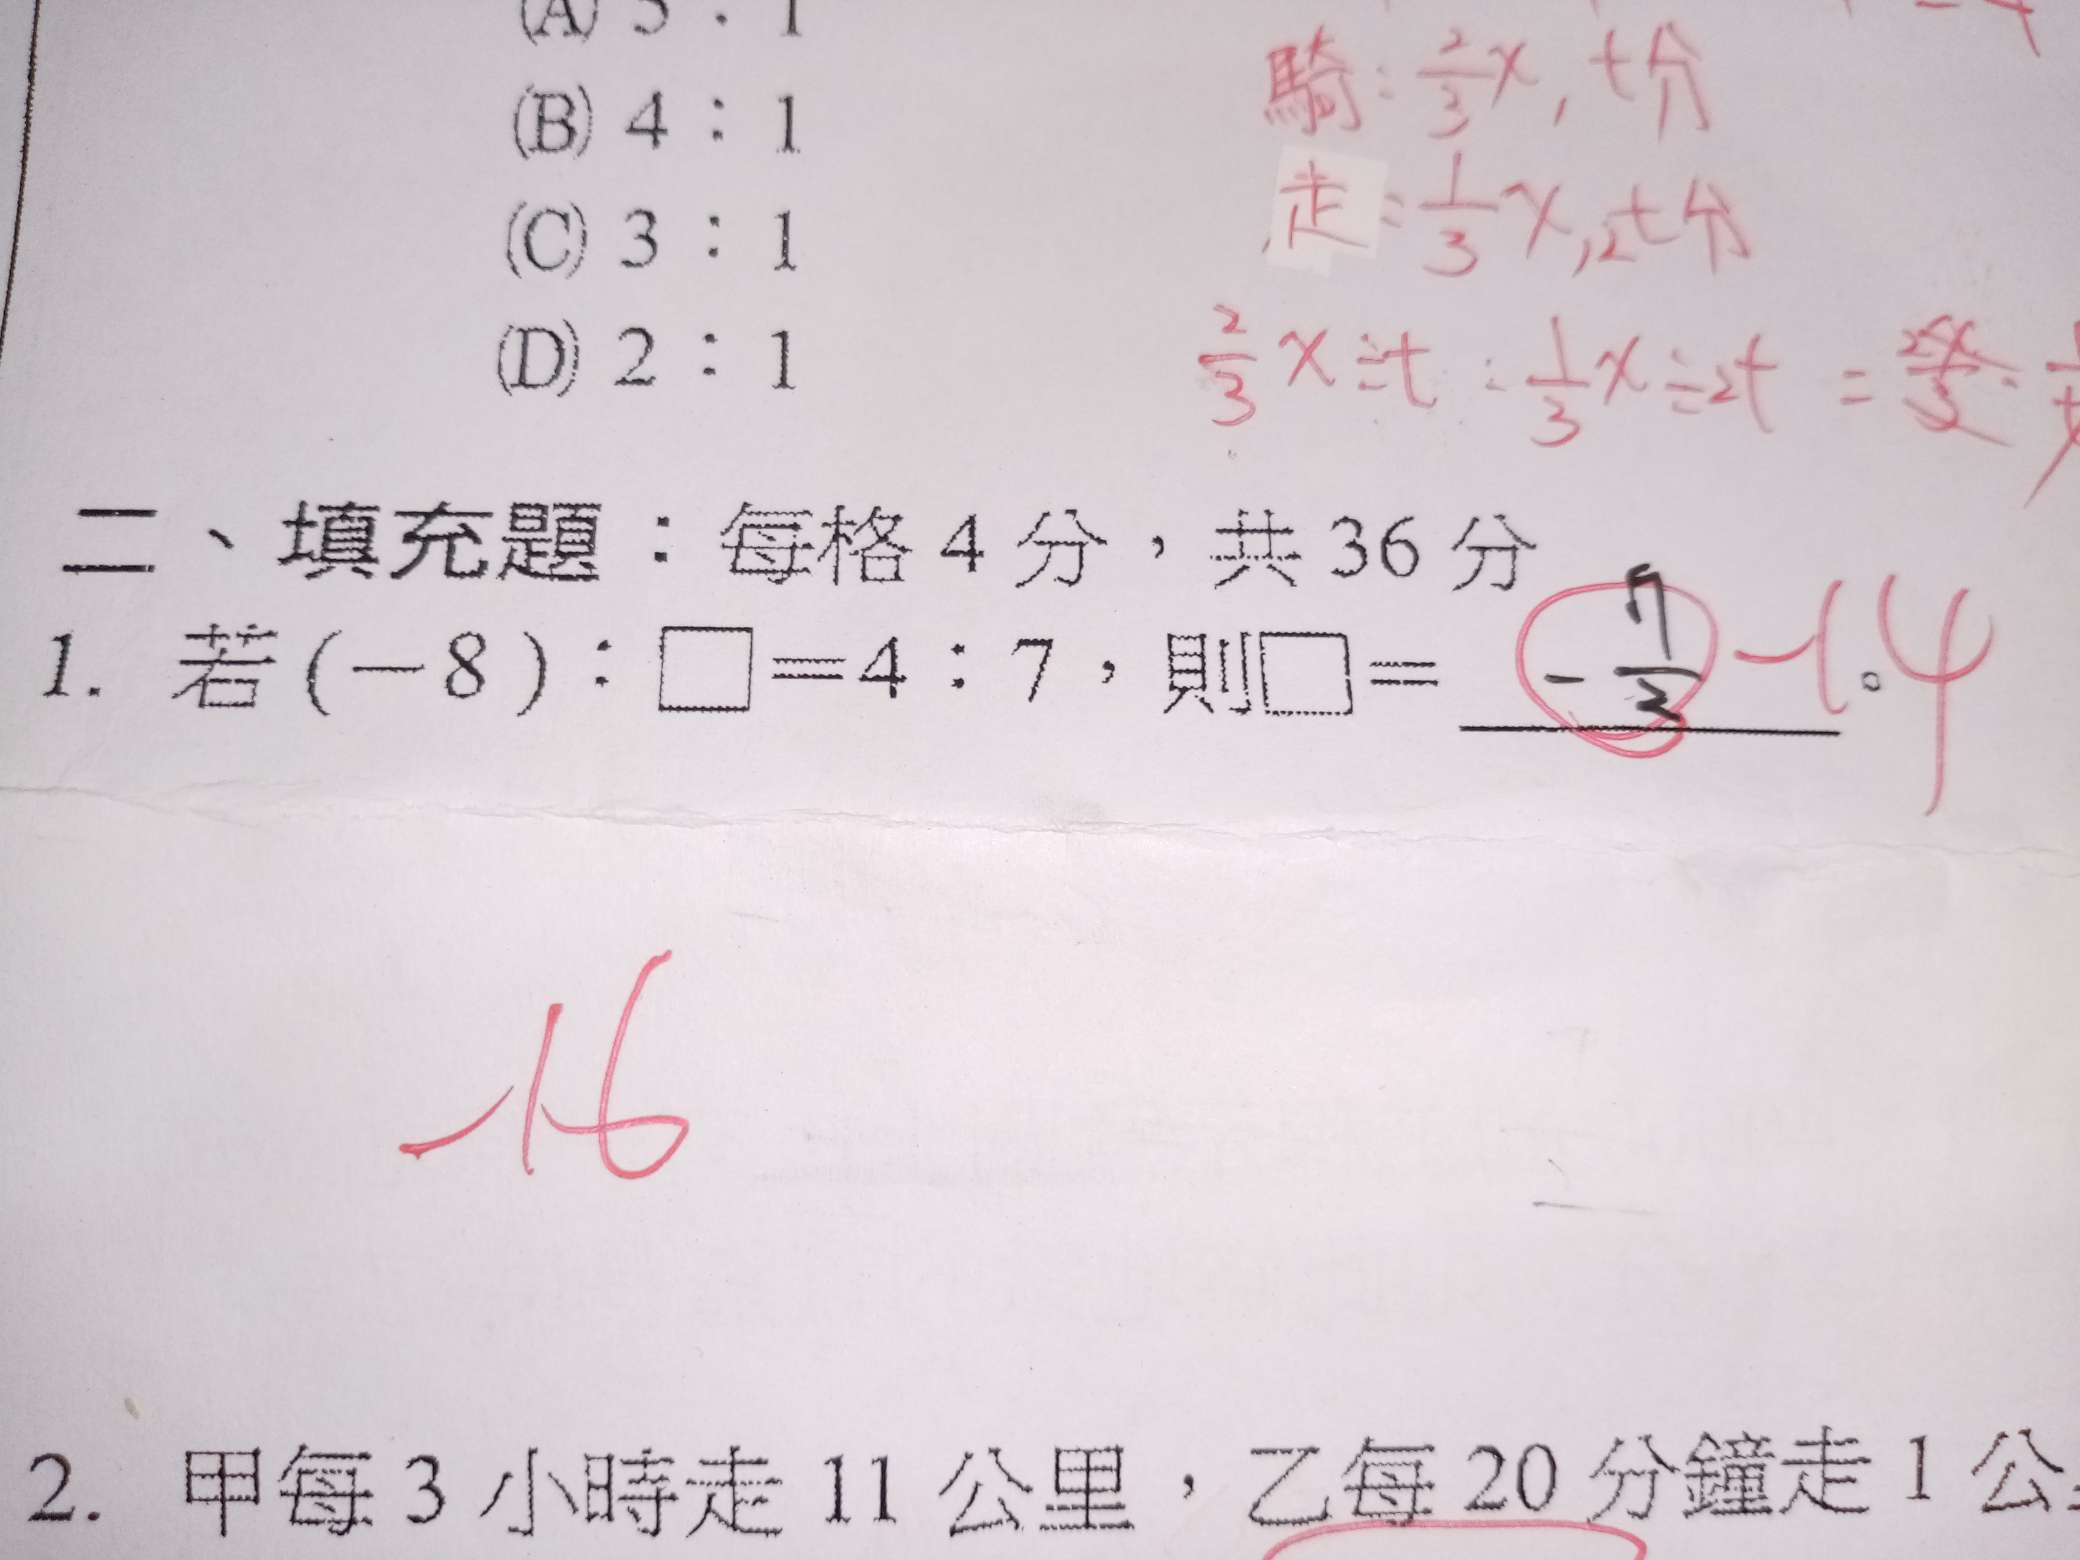 (A) 5：1
(B) 4：1
(C) 3：1
(D) 2：1
騎：2/3x, t分
走：1/3x, 2t分
2/3x÷t：1/3x÷2t =
二、填充題：每格 4 分，共 36 分
1. 若(－8)：□＝4：7，則□＝ -7/2 。 -14
-16
2. 甲每 3 小時走 11 公里，乙每 20 分鐘走 1 公